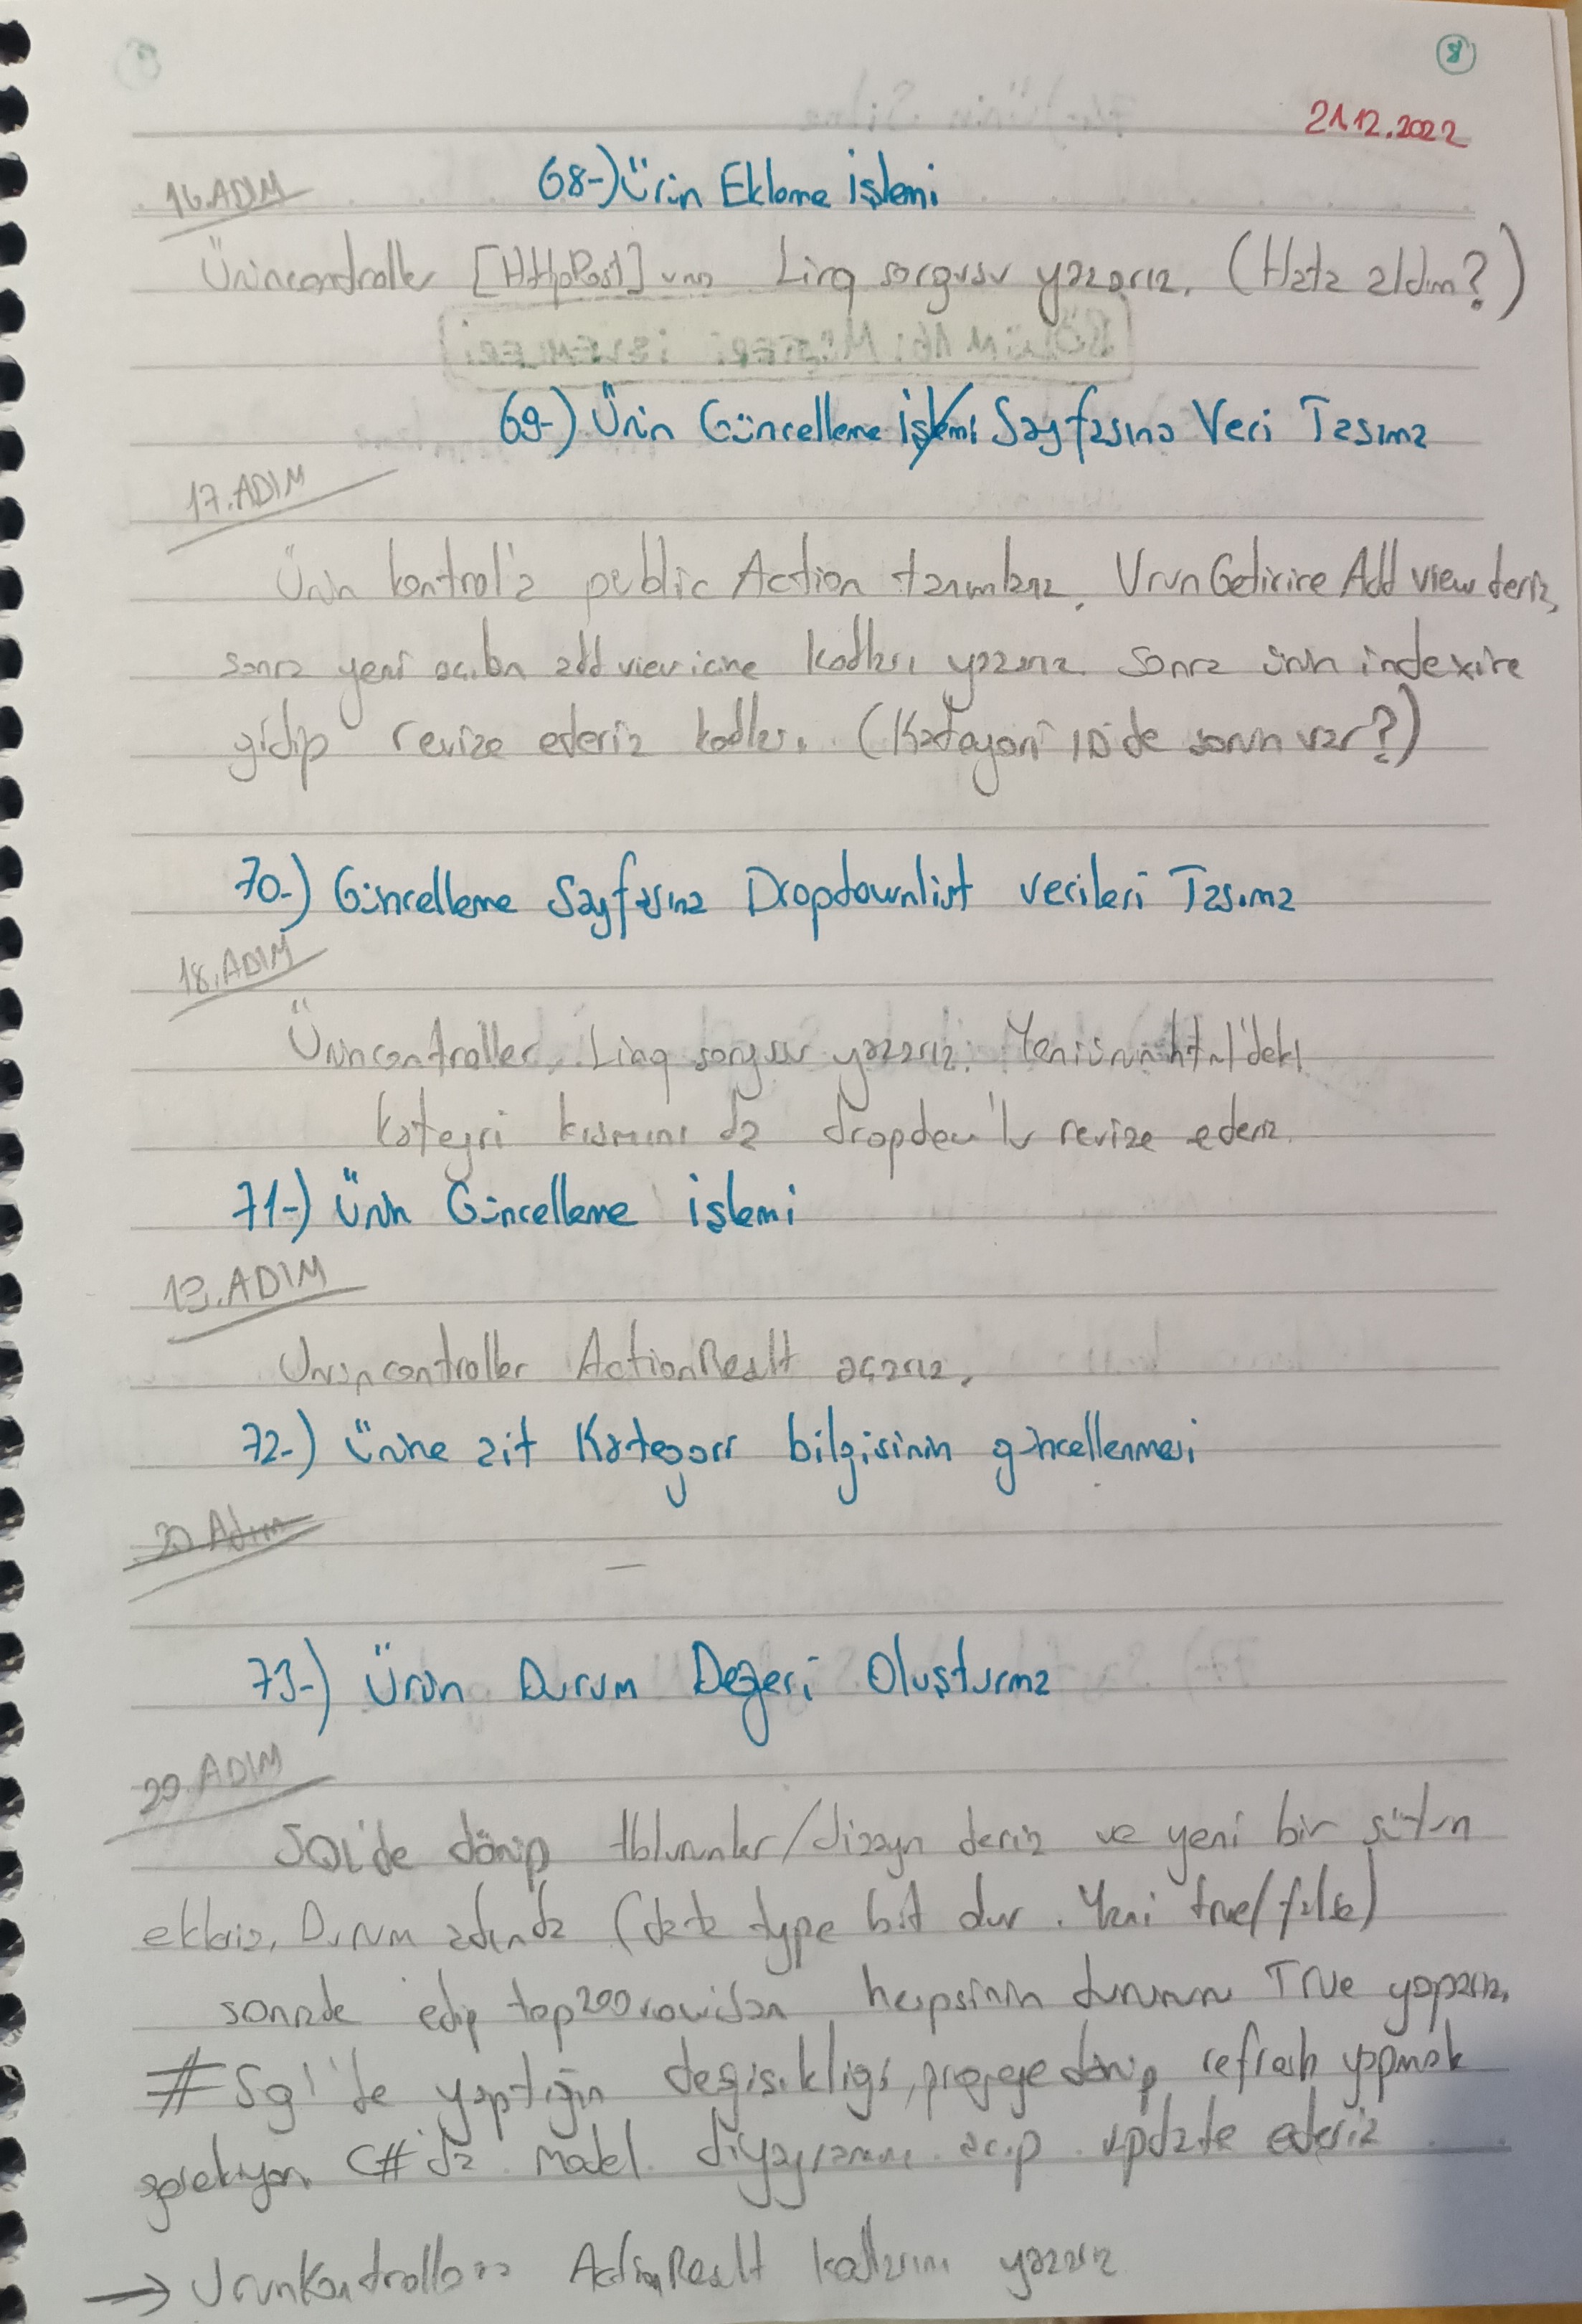 8
21.12.2022
16.ADIM
68-) Ürün Ekleme İşlemi
Ürüncontroller [HttpPost] una Linq sorgusu yazarız. (Hata aldım?)
69-) Ürün Güncelleme İşlemi Sayfasına Veri Tasıma
17.ADIM
Ürün kontrol'a public Action tanımlarız. UrunGetirire Add view deriz,
sonra yeni acılan add view icine kodları yazarız. sonra ürün indexine
gidip revize ederiz kodları. (Kategori ID de sorun var?)
70-) Güncelleme Sayfasına Dropdownlist verileri Tasıma
18.ADIM
Ürüncontroller, Linq sorgusu yazarız. Yeniürün html'deki
kategri kısmını da dropdow'lu revize ederiz.
71-) Ürün Güncelleme işlemi
19.ADIM
Urüncontroller ActionReslt açarız.
72-) Ürüne ait Kategori bilgisinin güncellenmesi
20.Adım
73-) Ürün Durum Değeri Oluşturma
20.ADIM
SQL'de dönüp tblurunler/dizayn deriz ve yeni bir sütun
ekleriz. Durum adında (data type bit dur. Yani true/false)
sonrada edip top200rowdan hepsinin durumunu True yaparız.
# Sql'de yaptığın değisikliği, projeye dönüp refresh yapmak
gerekiyor. C# da model diyagramını acıp update ederiz
→ UrunKontrollera ActionReslt kodlarını yazarız